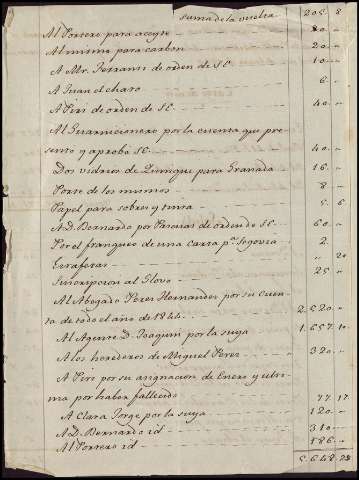 suma de la vuelta 205.. 8
Al Portero para aceyte 20 "
Al mismo para carbon 20 "
A Mr. Ferrann de orden de SE. 10 "
A Juan el charo 6 "
A Piri de orden de SE. 40 "
Al Guarnicionero por la cuenta que pre
sento y aprobo SE. 40 "
Dos vidrios de Zuringue para Granada 16 "
Porte de los mismos 8 "
Papel para sobres y tinta 5.. 6
A D. Bernardo por Pascuas de orden de SE. 60 "
Por el franqueo de una carta pa. Segovia 2
Estafetas " 20
Suscripcion al Globo 25 "
Al Abogado Perez Hernandez por su Cuen
ta de todo el año de 1844 2.520 "
Al Agente D. Joaquin por la suya 1.657.. 10
A los herederos de Miguel Perez 320 "
A Piri por su asignacion de Enero y ulti
ma por haber fallecido 77.. 17
A Clara Jorge por la suya 120 "
A D. Bernardo id 310 "
Al Portero id 186 "
5.648.. 28